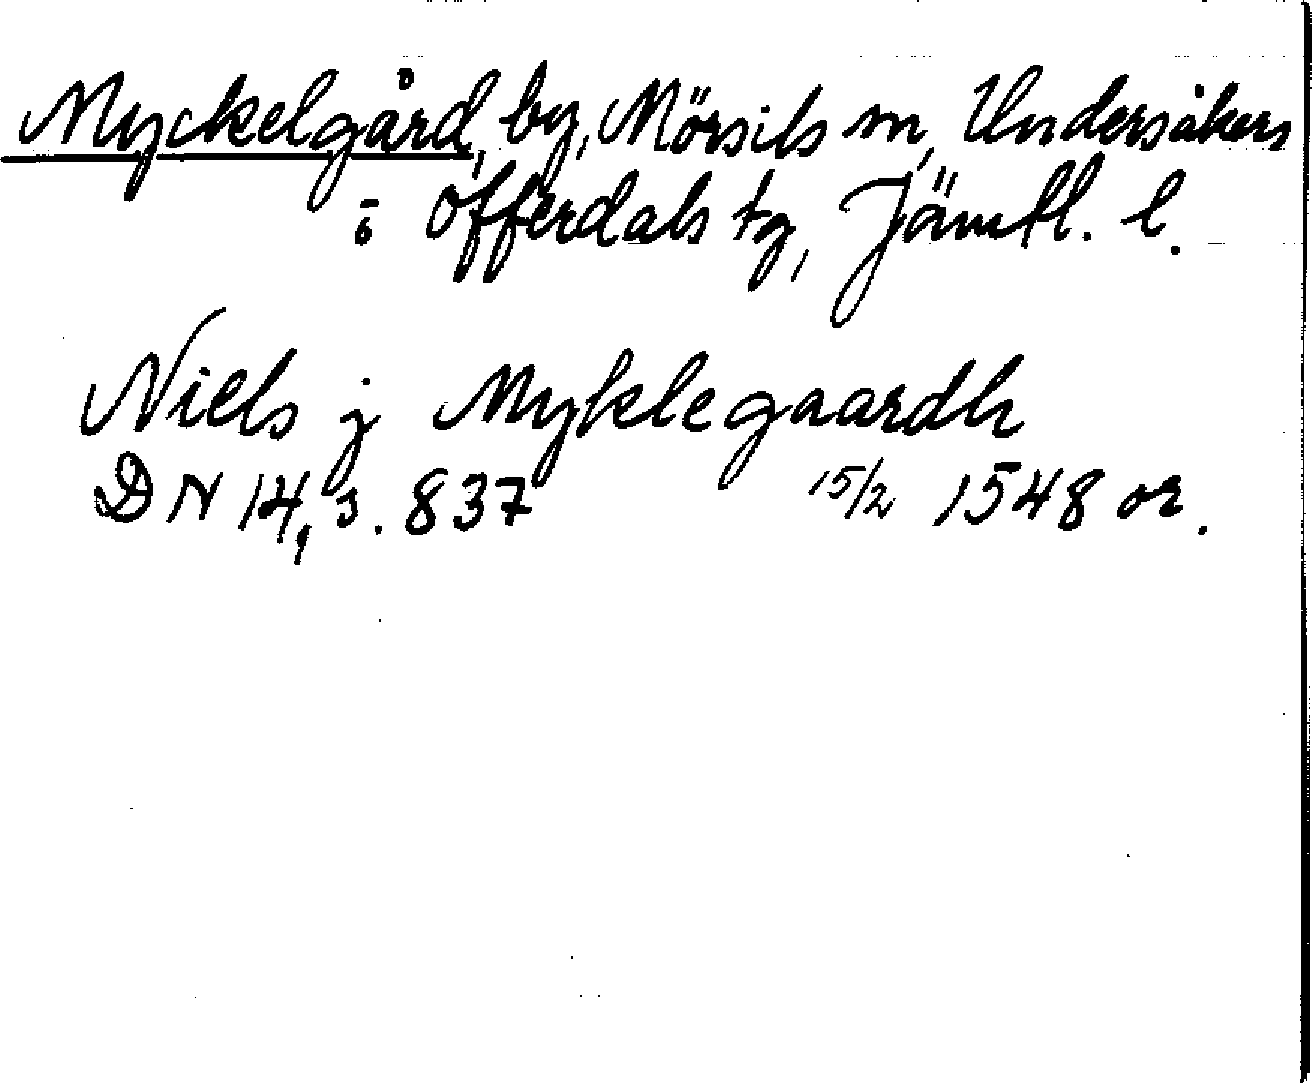 Myckelgård, by, Mörsils sn, Undersåkers
o Offerdals tg, Jämtl. l.
Niels j Myklegaardh
DN 14, s. 837 15/2 1548 or.